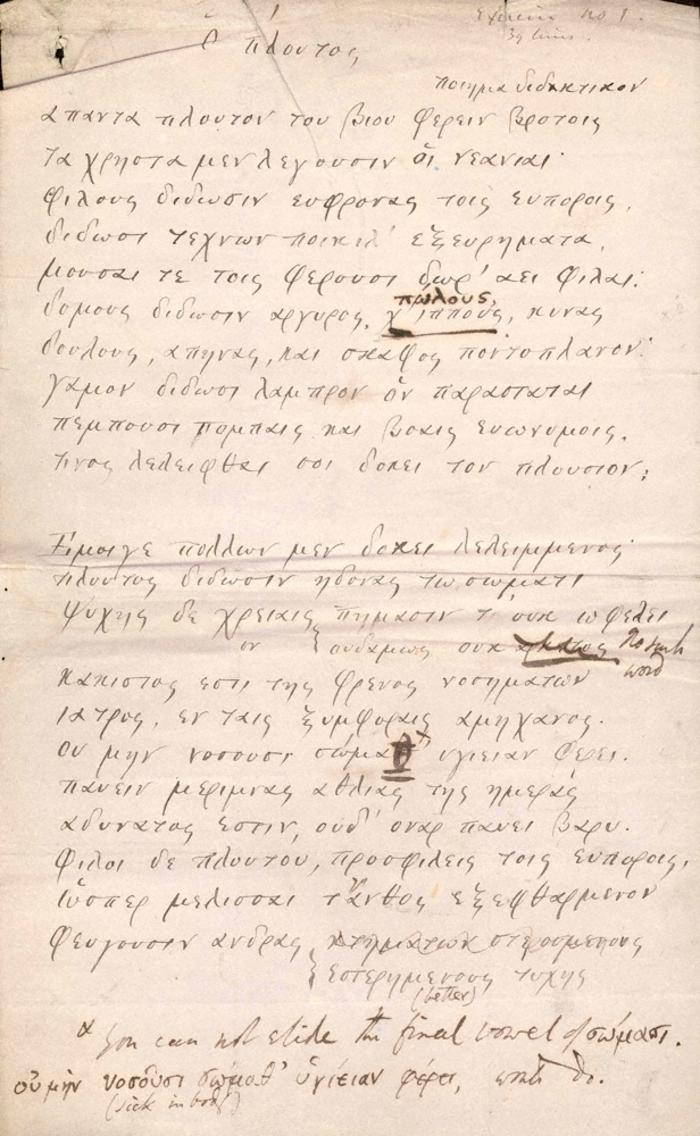 Exercise no 1.
39 lines.
ὁ πλουτος
ποιημα διδακτικον
απαντα πλουτον του βιου φερειν βροτοις
τα χρηστα μεν λεγουσιν οἱ νεανιαι·
φιλους διδωσιν ευφρονας τοις ευποροις,
διδωσι τεχνων ποικιλ' εξευρηματα,
μουσαι τε τοις φερουσι δωρ' αει φιλαι·
πώλους,
δομους διδωσιν αργυρος, χ' ιππους, κυνας
δουλους, απηνας, και σκαφος ποντοπλανον·
γαμον διδωσι λαμπρον ὁν παρασταται
πεμπουσι πομπαις και βοαις ευωνυμοις.
τινος λελειφθαι σοι δοκει τον πλουσιον;
Εμοιγε πολλων μεν δοκει λελειμμενος·
πλουτος διδωσιν ηδονας τω σωματι
ψυχης δε χρειαις πημασιν τ' ουκ ωφελει
or ουδαμως ουκ No such
word
κακιστος εστι της φρενος νοσηματων
ιατρος, εν ταις ξυμφοραις αμηχανος.
ου μην νοσουσι σώμαθ' x υγιειαν φερει.
παυειν μεριμνας αθλιας της ημερας
αδυνατος εστιν, ουδ' οναρ παυει βαρυ.
φιλοι δε πλουτου, προσφιλεις τοις ευποροις,
ὡσπερ μελισσαι τἀνθος εξεφθαρμενον
φευγουσιν ανδρας κτηματων στερουμενους
εστερημενους τυχης
(better)
x You can not elide the final vowel of σώμασι.
οὐ μὴν νοσοῦσι σώμαθ' ὑγίειαν φέρει, would do.
(sick in body)